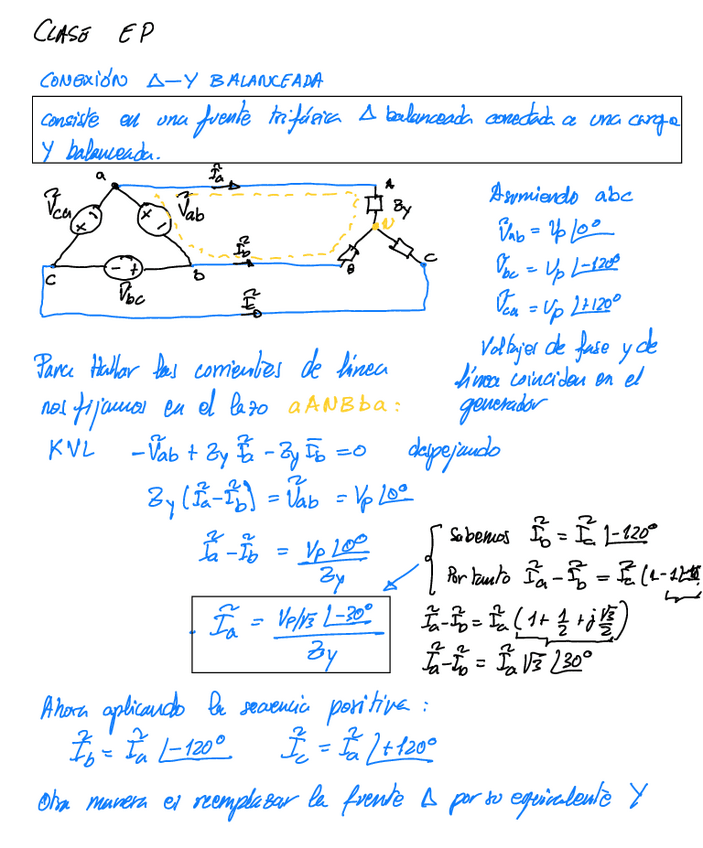 CLASE EP
CONEXIÓN Δ–Y BALANCEADA
Consiste en una fuente trifásica Δ balanceada conectada a una carga
Y balanceada.
a Ĩa A
Ṽca + − + − Ṽab Zy
N
Ĩb
c − + b B C
Ṽbc
Ĩc
Asumiendo abc
Ṽab = Vp ∠0°
Ṽbc = Vp ∠-120°
Ṽca = Vp ∠+120°
Voltajes de fase y de
línea coinciden en el
generador
Para Hallar las corrientes de línea
nos fijamos en el lazo aANBba:
KVL -Ṽab + Zy Ĩa - Zy Ĩb = 0 despejando
Zy (Ĩa - Ĩb) = Ṽab = Vp ∠0°
Ĩa - Ĩb = Vp ∠0° / Zy
Ĩa = Vp/√3 ∠-30° / Zy
Sabemos Ĩb = Ĩa ∠-120°
Por tanto Ĩa - Ĩb = Ĩa (1 - 1
Ĩa - Ĩb = Ĩa (1 + 1/2 + j √3/2)
Ĩa - Ĩb = Ĩa √3 ∠30°
Ahora aplicando la secuencia positiva:
Ĩb = Ĩa ∠-120° Ĩc = Ĩa ∠+120°
Otra manera es reemplasar la fuente Δ por su equivalente Y